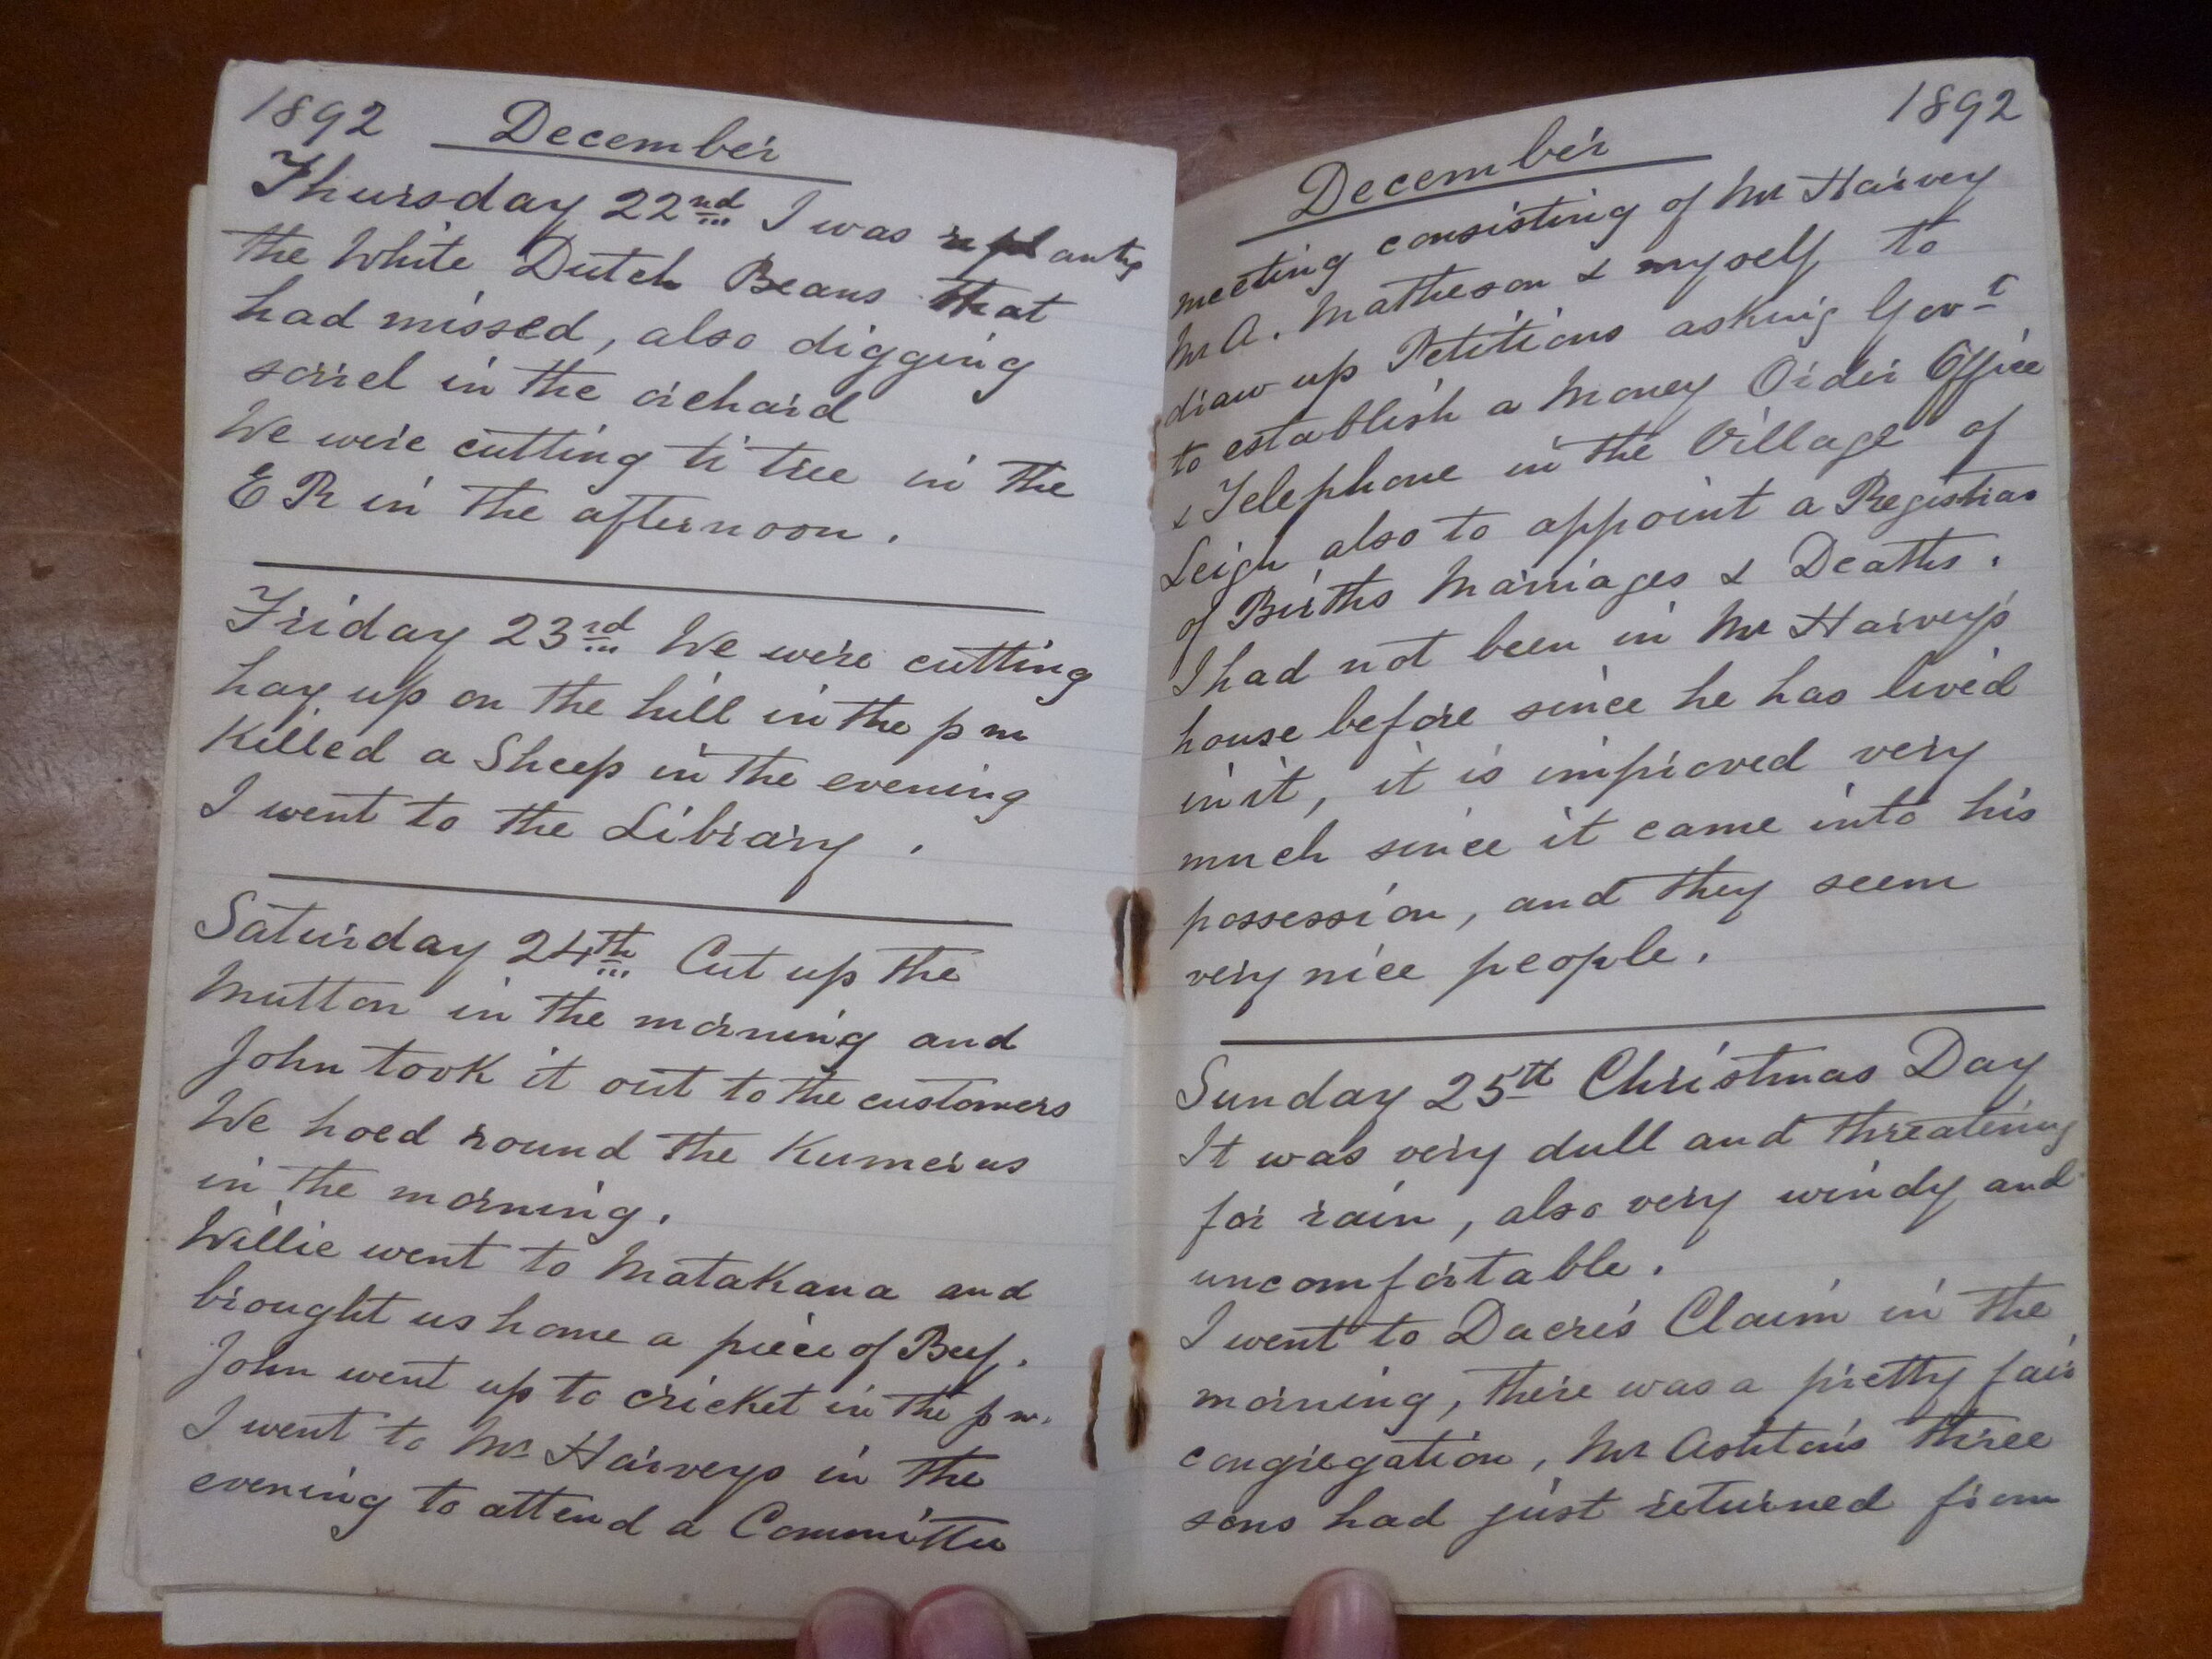 1892 December
Thursday 22nd I was replanting
the White Dutch Beans that
had missed, also digging
sorrel in the orchard
We were cutting ti tree in the
E R in the afternoon.
Friday 23rd We were cutting
hay up on the hill in the p m
Killed a Sheep in the evening
I went to the Library.
Saturday 24th Cut up the
Mutton in the morning and
John took it out to the customers
We hoed round the Kumeras
in the morning.
Willie went to Matakana and
brought us home a piece of Beef.
John went up to cricket in the p m.
I went to Mr Harveys in the
evening to attend a Committee
December 1892
meeting consisting of Mr Harvey
Mr A. Matheson & myself to
draw up Petitions asking Govt
to establish a Money Order Office
& Telephone in the Village of
Leigh also to appoint a Registrar
of Births Marriages & Deaths.
I had not been in Mr Harveys
house before since he has lived
in it, it is improved very
much since it came into his
possession, and they seem
very nice people.
Sunday 25th Christmas Day
It was very dull and threatening
for rain, also very windy and
uncomfortable.
I went to Dacre's Claim in the
morning, there was a pretty fair
congregation, Mr Ashton's three
sons had just returned from